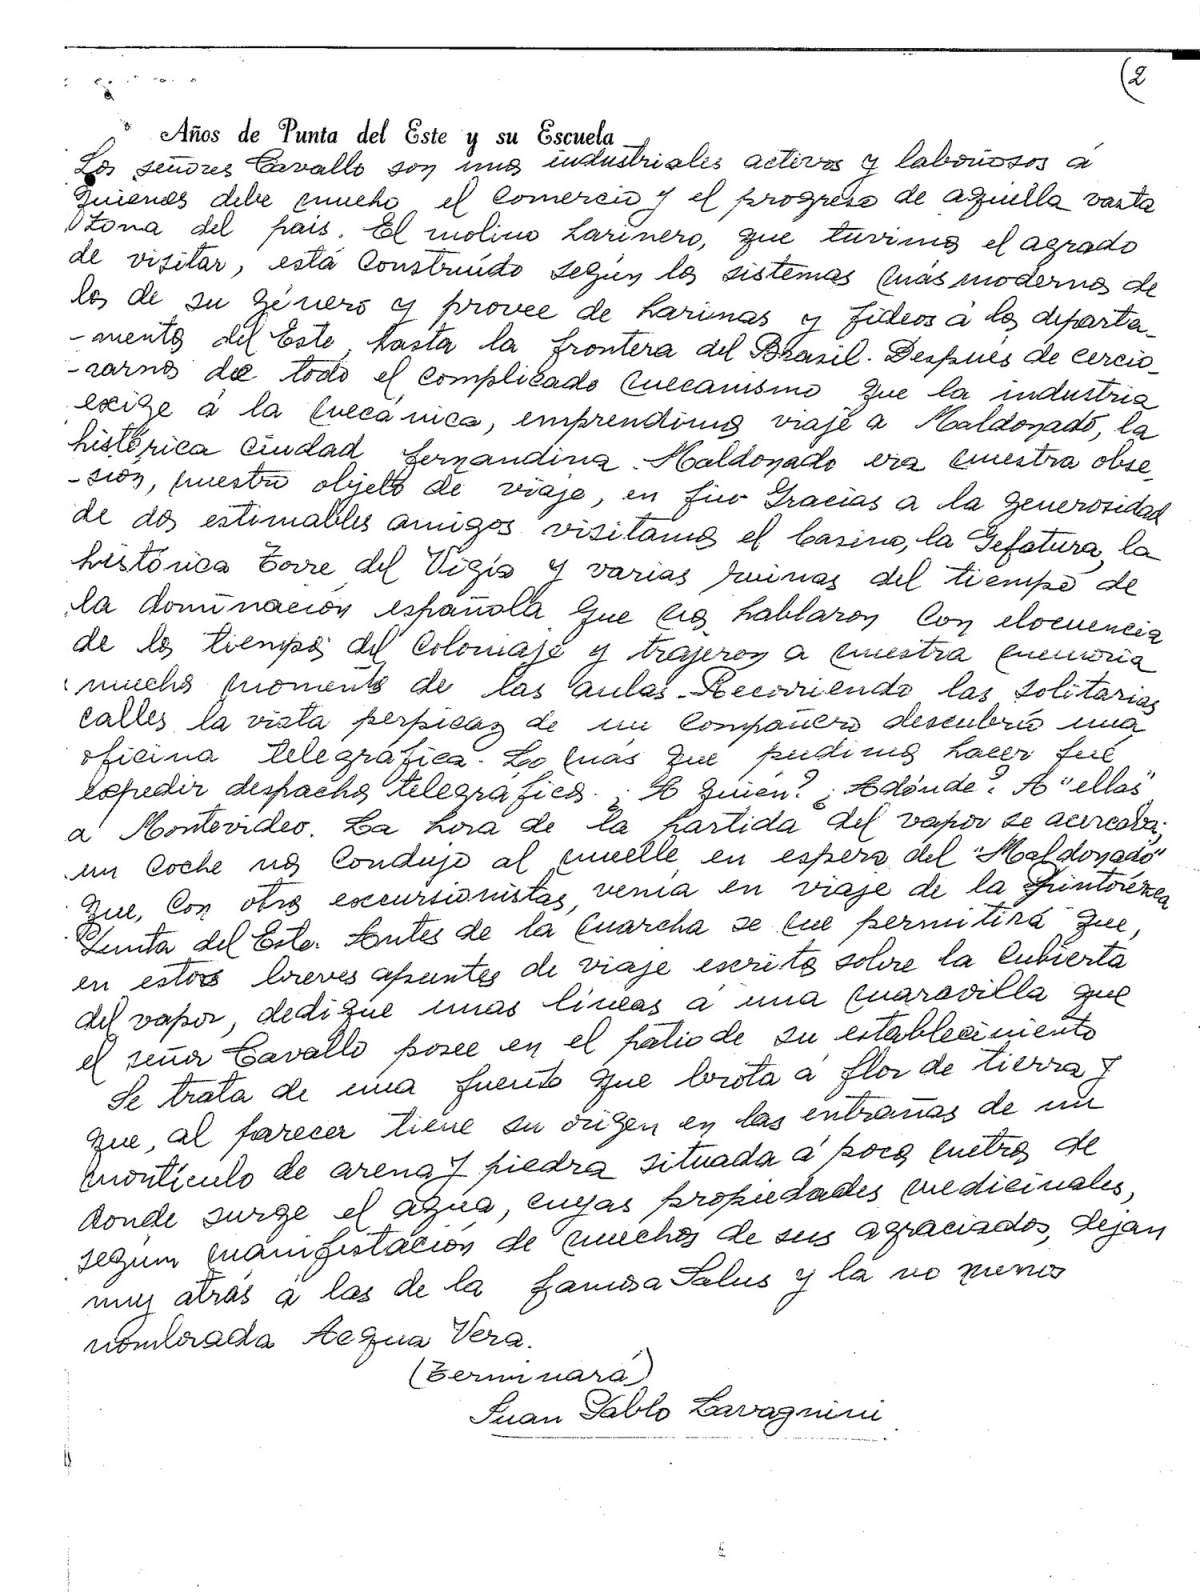 (2
Años de Punta del Este y su Escuela
Los señores Cavallo son unos industriales activos y laboriosos á
quienes debe mucho el comercio y el progreso de aquella vasta
zona del país. El molino harinero, que tuvimos el agrado
de visitar, está construído según los sistemas más modernos de
los de su género y provee de harinas y fideos á los departa-
-mentos del Este, hasta la frontera del Brasil. Después de cercio-
-rarnos de todo el complicado mecanismo que la industria
exige á la mecánica, emprendimos viaje a Maldonado, la
histórica ciudad fernandina. Maldonado era nuestra obse-
-sión, nuestro objeto de viaje, en fin Gracias a la generosidad
de dos estimables amigos visitamos el Casino, la Gefatura, la
histórica Torre del Vigía y varias ruinas del tiempo de
la dominación española que nos hablaron con elocuencia
de los tiempos del coloniaje y trajeron a nuestra memoria
muchos momentos de las aulas. Recorriendo las solitarias
calles la vista perpicaz de un compañero descubrió una
oficina telegráfica. Lo más que pudimos hacer fué
expedir despachos telegráficos. ¿A quién? ¿Adónde? A "ellas"
a Montevideo. La hora de la partida del vapor se acercaba;
un coche nos condujo al muelle en espera del "Maldonado"
que, con otros excursionistas, venía en viaje de la pintorezca
Punta del Este. Antes de la marcha se me permitirá que,
en estos breves apuntes de viaje escritos sobre la cubierta
del vapor, dedique unas líneas á una maravilla que
el señor Cavallo posee en el patio de su establecimiento
Se trata de una fuente que brota á flor de tierra y
que, al parecer tiene su origen en las entrañas de un
montículo de arena y piedra situada á pocos metros de
donde surge el agua, cuyas propiedades medicinales,
según manifestación de muchos de sus agraciados, dejan
muy atrás á las de la famosa Salus y la no menos
nombrada Acqua Vera.
(Terminará)
Juan Pablo Lavagnini